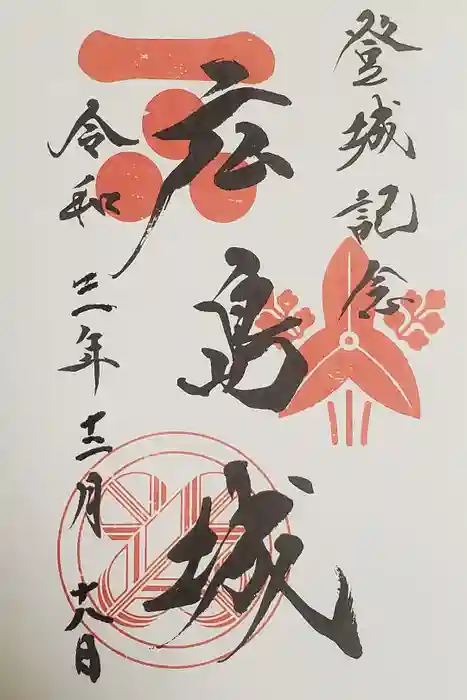 登城記念
広島城
令和三年十二月十八日